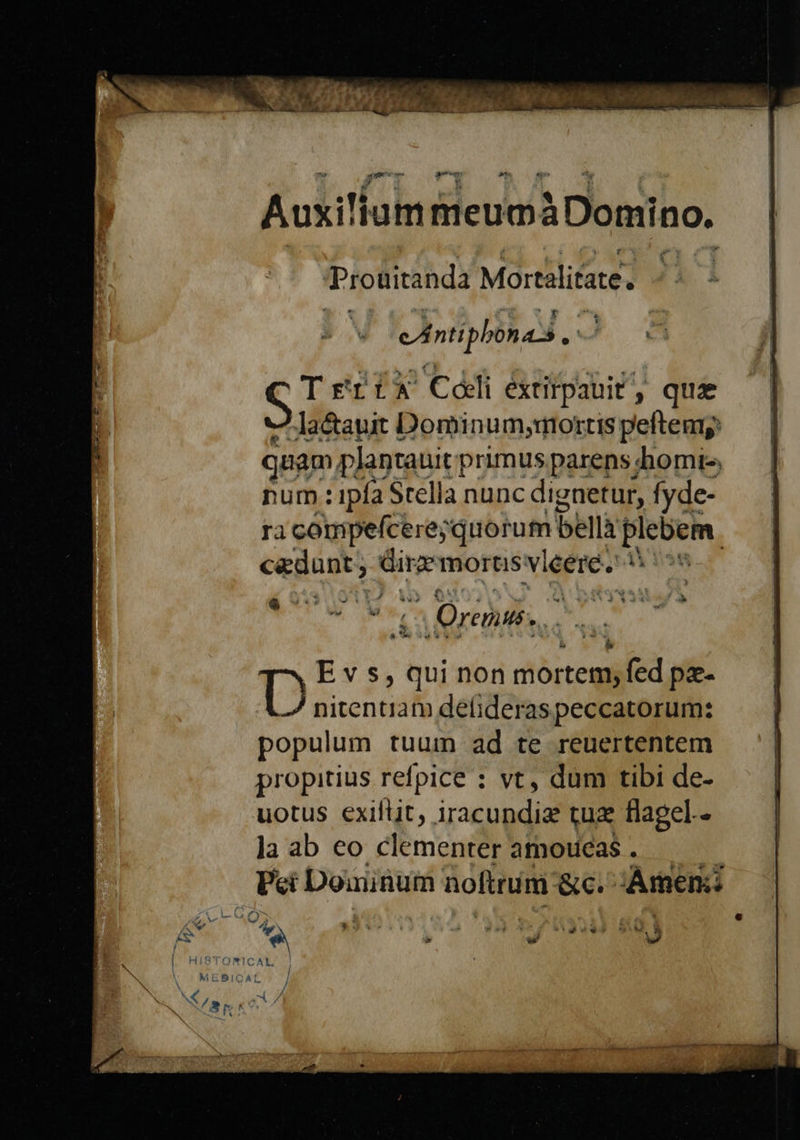 Auxilium meum à Domino.
Prouitanda Mortalitate.
Antiphona.
STELLA Cœli extirpauit, quæ
lactauit Dominum, mortis pestem,
quam plantauit primus parens homi-
num: ipsa Stella nunc dignetur, syde-
ra compescere, quorum bella plebem
cædunt, diræ mortis vlcere.
Oremus.
DEvs, qui non mortem, sed pæ-
nitentiam desideras peccatorum:
populum tuum ad te reuertentem
propitius respice: vt, dum tibi de-
uotus existit, iracundiæ tuæ flagel-
la ab eo clementer amoueas.
Per Dominum nostrum &c. Amen.
HISTORICAL
MEDICAL